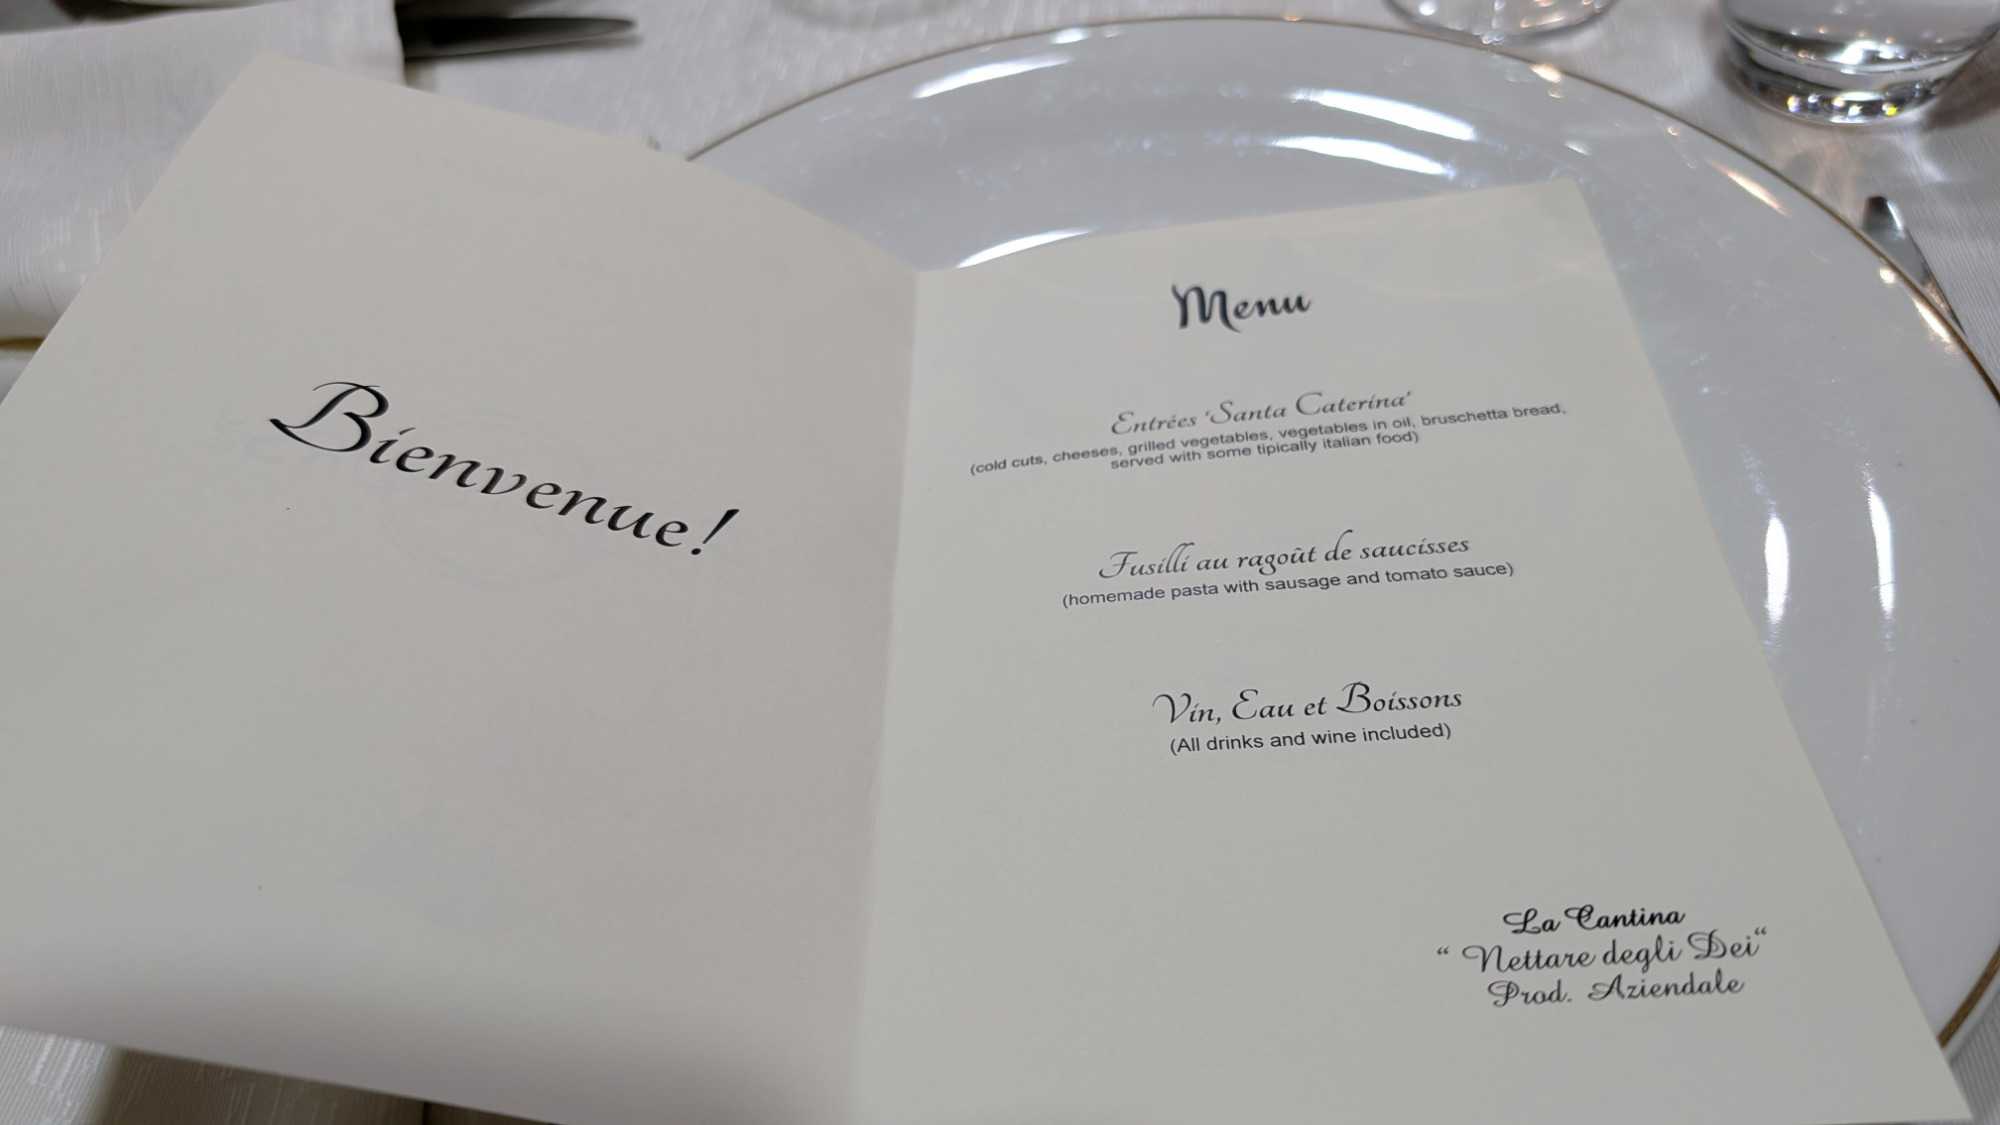 Bienvenue!
Menu
Entrées 'Santa Caterina'
(cold cuts, cheeses, grilled vegetables, vegetables in oil, bruschetta bread,
served with some tipically italian food)
Fusilli au ragoût de saucisses
(homemade pasta with sausage and tomato sauce)
Vin, Eau et Boissons
(All drinks and wine included)
La Cantina
“ Nettare degli Dei“
Prod. Aziendale